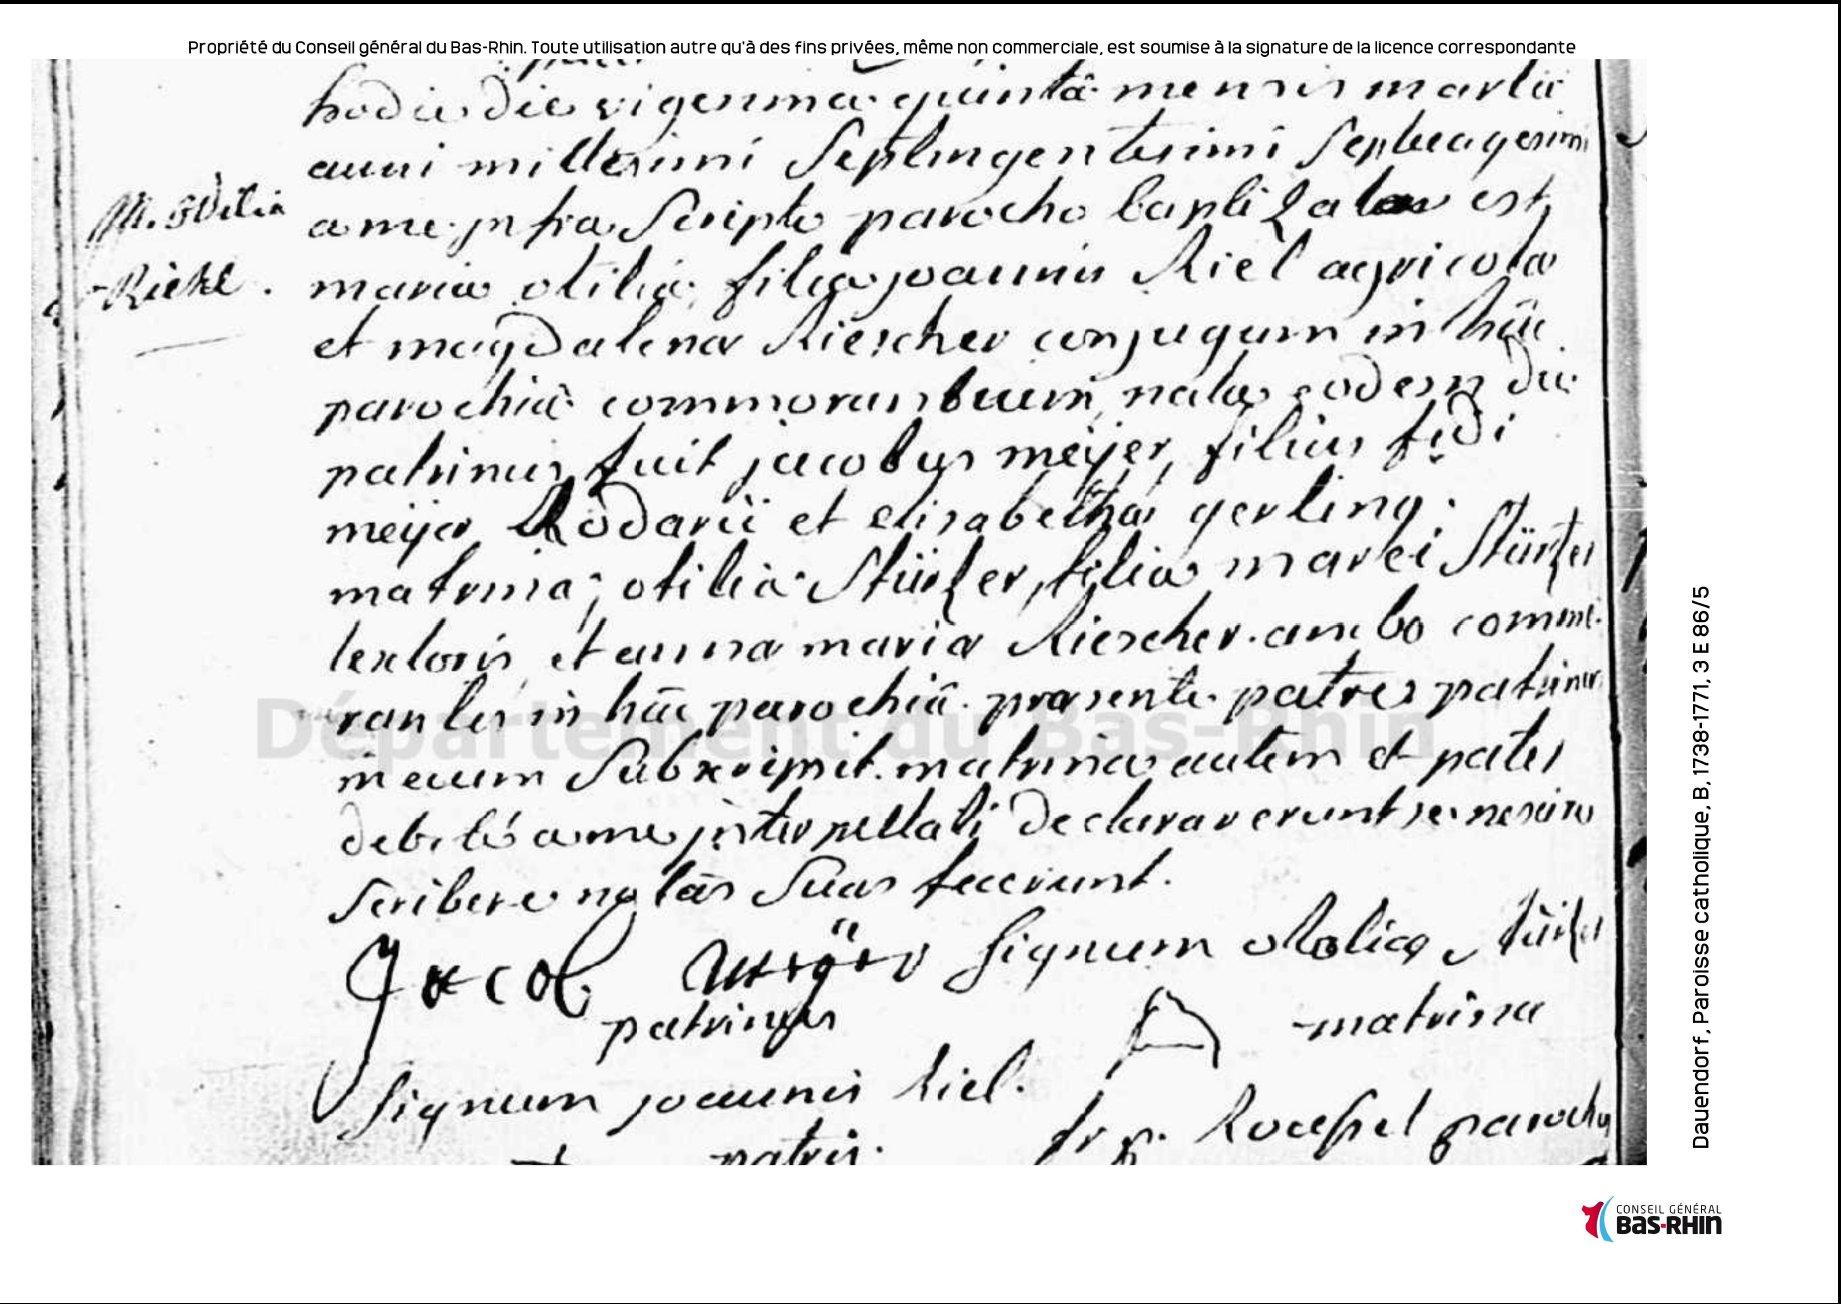 Propriété du Conseil général du Bas-Rhin. Toute utilisation autre qu'à des fins privées, même non commerciale, est soumise à la signature de la licence correspondante
hodie die vigesima quintâ mensis martii
anni millesimi septingentesimi septuagesimi
M. Odilia
a me infra scripto parocho baptizata est
Riehl.
maria otilia filia joannis Riel agricola
et magdalena Riescher conjugum in hâc
parochiâ commorantium, nata eodem die
patrinus fuit jacobus meÿer, filius
meÿer et elisabetha gerling.
matrina; otilia Stürtzer, filia Stürtzer
textoris, et anna maria Riescher. ambo commo
rantes in hâc parochiâ. præsente patre, patrinus
mecum subscripsit. matrina autem et pater
debitè a me interpellati declaraverunt se nescire
scribere notas suas fecerunt.
Jacob Meÿer signum otolia Stürtzer
patrinus matrina
signum joannis Riel.
patris. parochus
Département du Bas-Rhin
Dauendorf, Paroisse catholique, B, 1738-1771, 3 E 86/5
CONSEIL GÉNÉRAL
BAS-RHIN